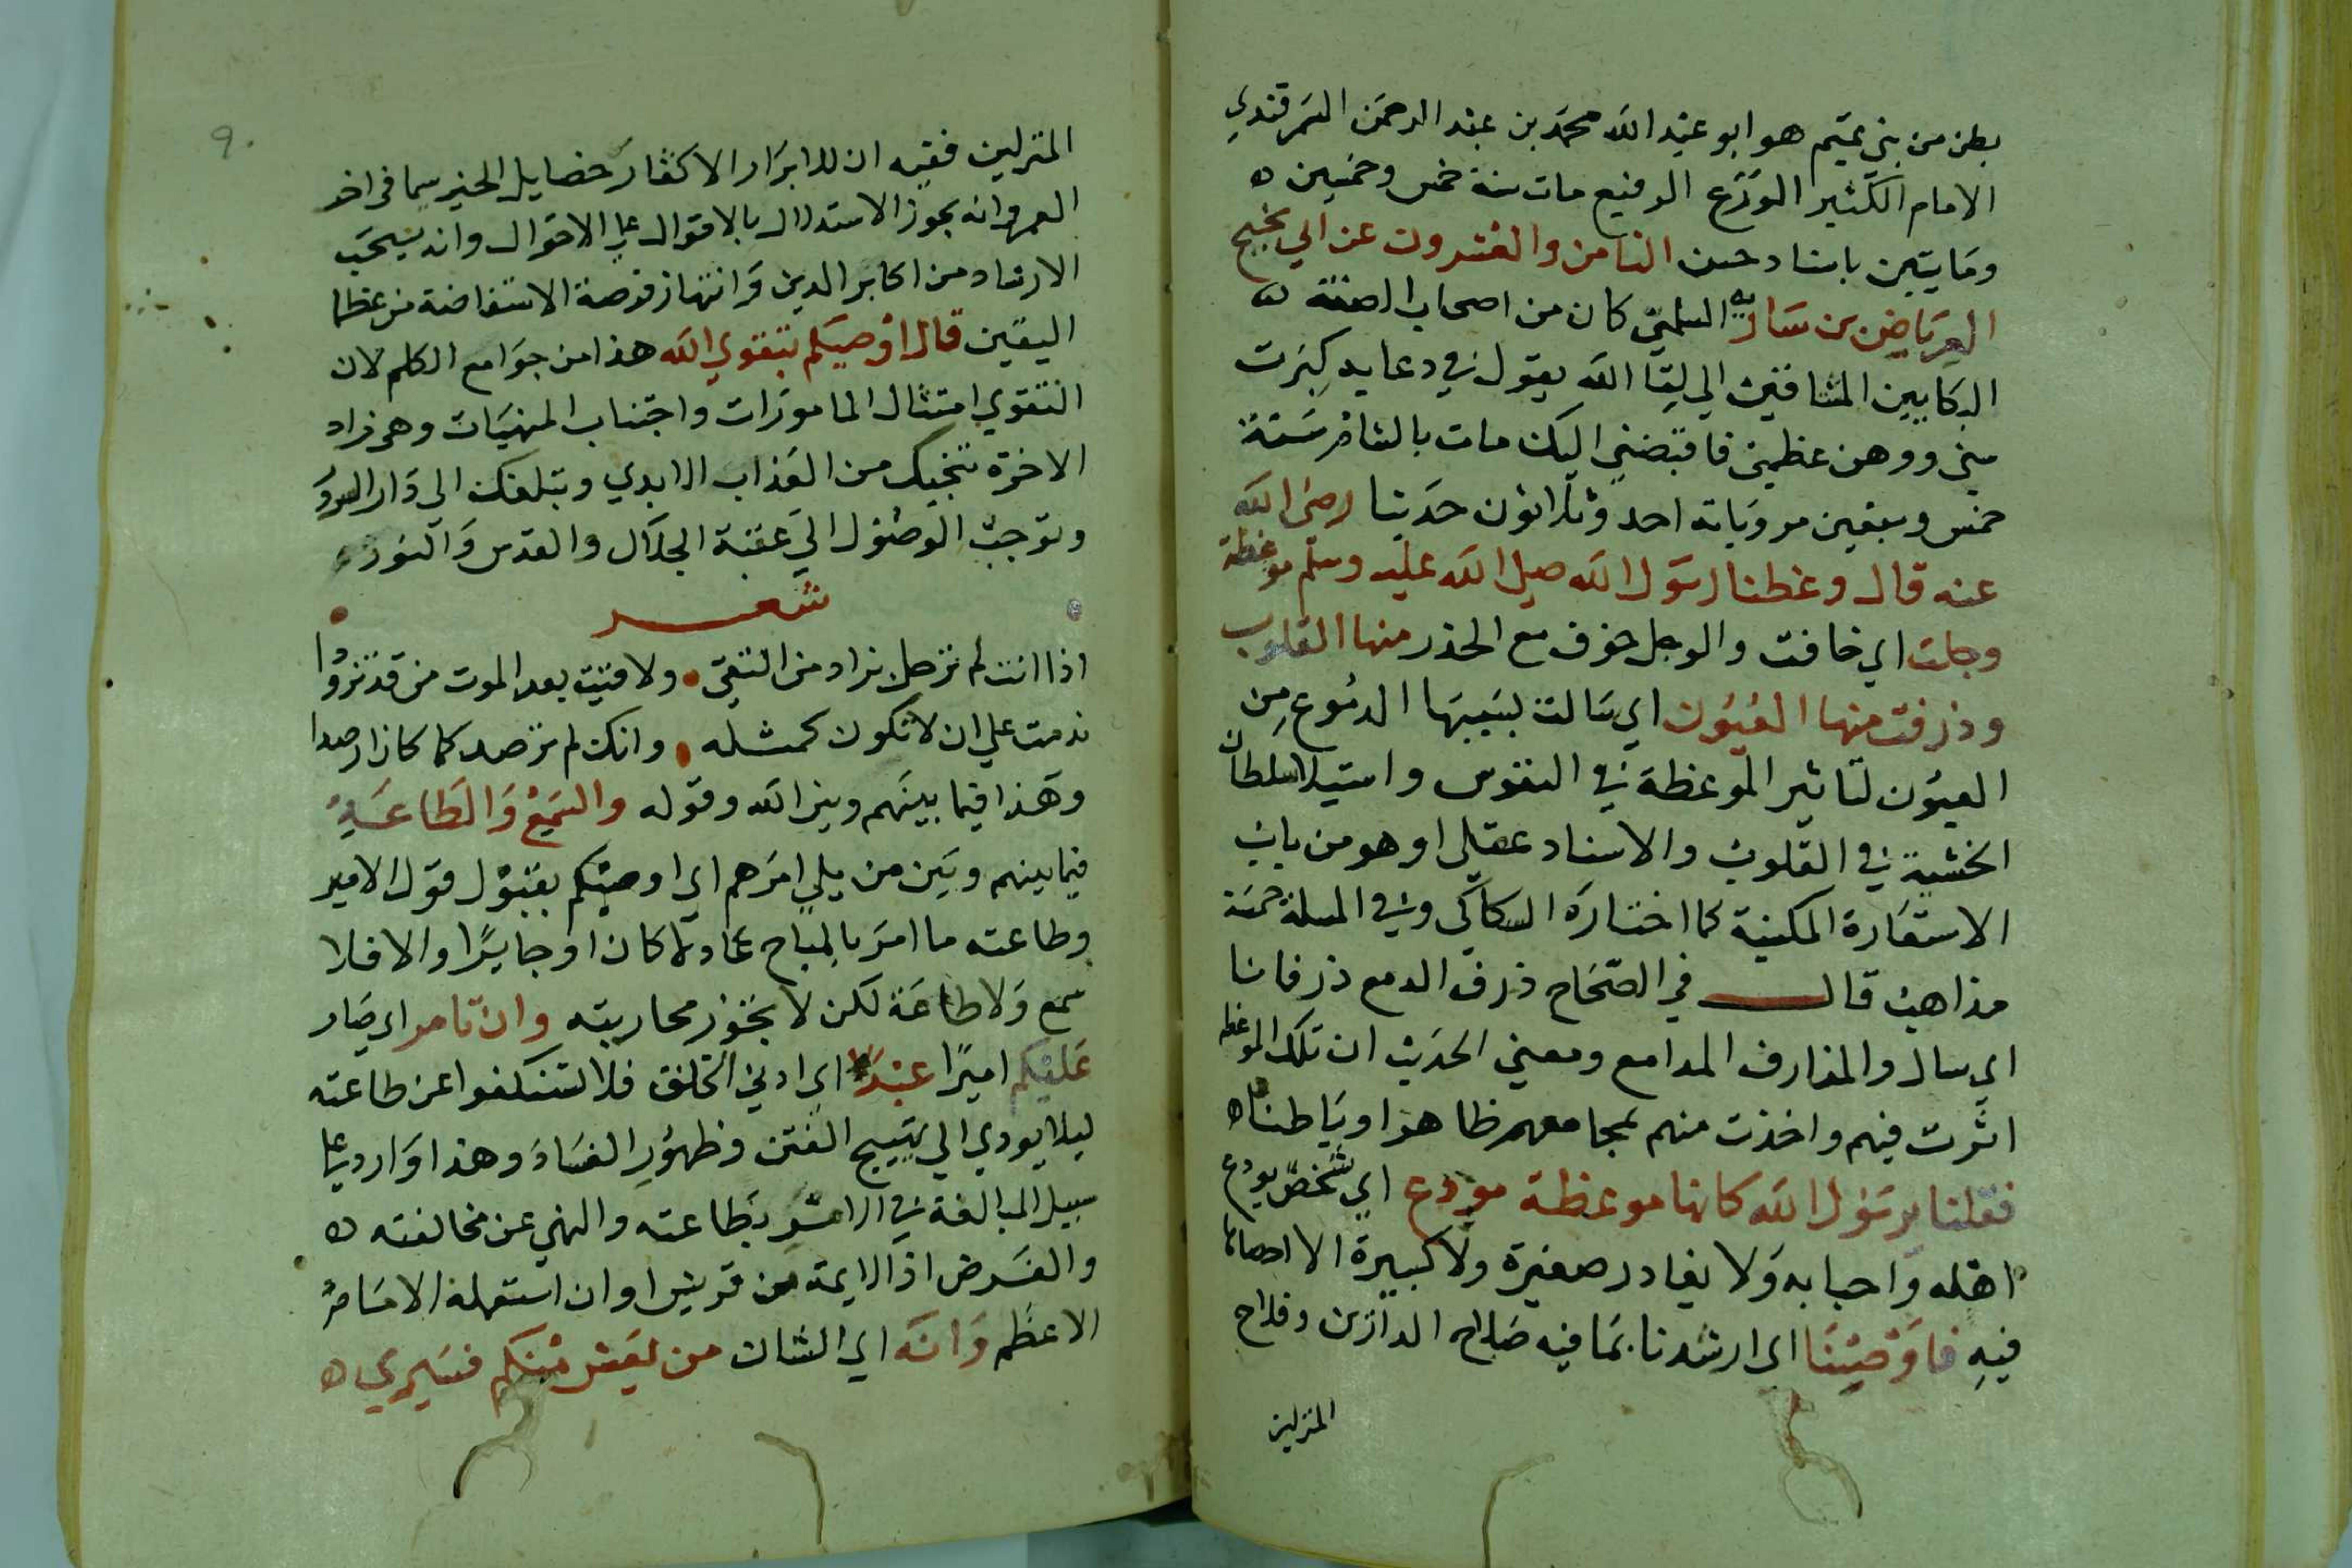 بطن من بني تميم هو ابو عبد الله محمد بن عبد الرحمن السمرقندي
الامام الكثير الورع الرفيع مات سنة خمس وخمسين
ومايتين باسناد حسن الثامن والعشرون عن ابي نجيح
العرباض بن سارية السلمي كان من اصحاب الصفة
البكايين المشتاقين الي لقا الله يقول في دعايه كبرت
سني ووهن عظمي فاقبضني اليك مات بالشام سنة
خمس وسبعين مروياته احد وثلاثون حديثا رضي الله
عنه قال وعظنا رسول الله صلي الله عليه وسلم موعظة
وجلت اي خافت والوجل خوف مع الحذر منها القلوب
وذرفت منها العيون اي سالت بسببها الدموع من
العيون لتاثير الموعظة في النفوس واستيلا سلطان
الخشية في القلوب والاسناد عقلي او هو من باب
الاستعارة المكنية كما اختاره السكاكي وفي المسلة خمسة
مذاهب قال في الصحاح ذرف الدمع ذرفانا
اي سال والمذارف المدامع ومعني الحديث ان تلك الموعظة
اثرت فيهم واخذت منهم بمجامعهم ظاهرا وباطنا
فقلنا يرسول الله كانها موعظة مودع اي شخص يودع
اهله واحبابه ولا يغادر صغيرة ولا كبيرة الا احصاها
فيه فاوصينا اي ارشدنا بما فيه صلاح الدارين وفلاح
المنزلين
المنزلين ففيه ان للابرار الاكثار خصايل الخير سيما في اخر
العمر وانه يجوز الاستدلال بالاقوال علي الاحوال وانه يستحب
الارشاد من اكابر الدين وانتهاز فرصة الاستفاضة من عظما
اليقين قال اوصيكم بتقوي الله هذا من جوامع الكلم لان
التقوي امتثال المامورات واجتناب المنهيات وهي زاد
الاخرة تنجيك من العذاب الابدي وتبلغك الي دار السرور
وتوجب الوصول الي عقبة الجلال والقدس والنور
شعر
اذا انت لم ترحل بزاد من التقي ولاقيت بعد الموت من قد تزودا
ندمت علي ان لا تكون كمثله وانك لم ترصد كما كان ارصدا
وهذا فيما بينهم وبين الله وقوله والسمع والطاعة
فيما بينهم وبين من يلي امرهم اي اوصيكم بقبول قول الامير
وطاعته ما امر بالمباح عادلا كان او جايرا والا فلا
سمع ولا طاعة لكن لا يجوز محاربته وان تامر اي صار
عليكم اميرا عبد اي ادني الخلق فلا تستنكفوا عن طاعته
ليلا يودي الي تهييج الفتن وظهور الفساد وهذا وارد علي
سبيل المبالغة في الامر بطاعته والنهي عن مخالفته
والفرض اذ الايمة من قريش او ان استعمله الامام
الاعظم وانه اي الشان من يعش منكم فسيري